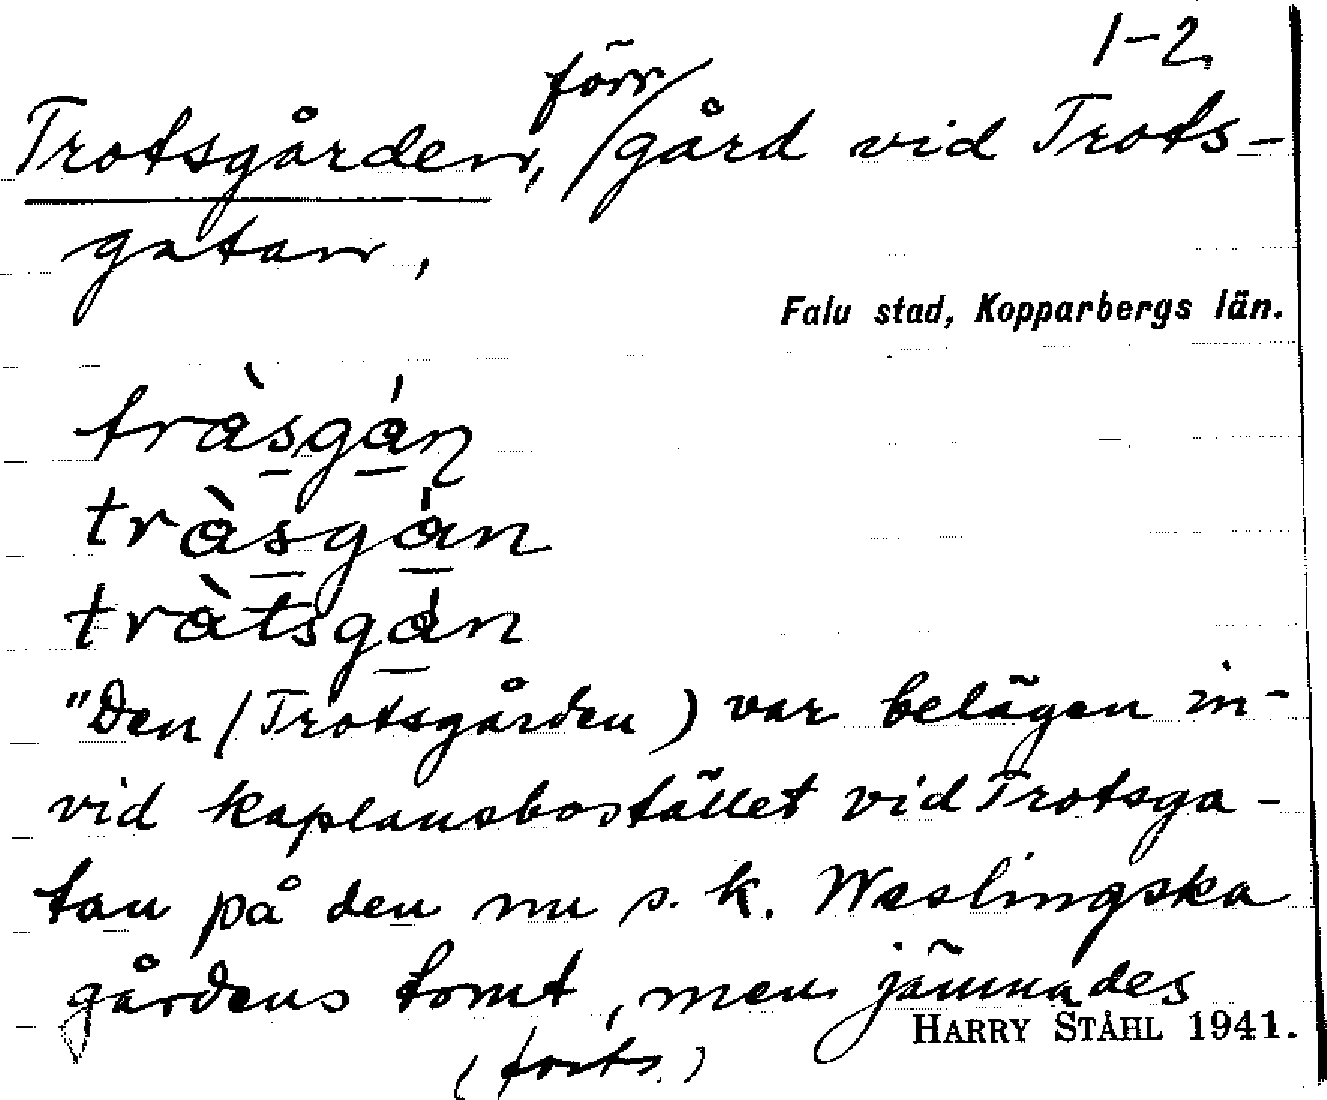 1-2
förr
Trotsgården, / gård vid Trots-
gatan,
Falu stad, Kopparbergs län.
tràsgán
tràsgán
tràtsgán
"Den (Trotsgården) var belägen in-
vid kaplansbostället vid Trotsga-
tan på den nu s. k. Weslingska
gårdens tomt, men jämnades
HARRY STÅHL 1941.
(forts.)